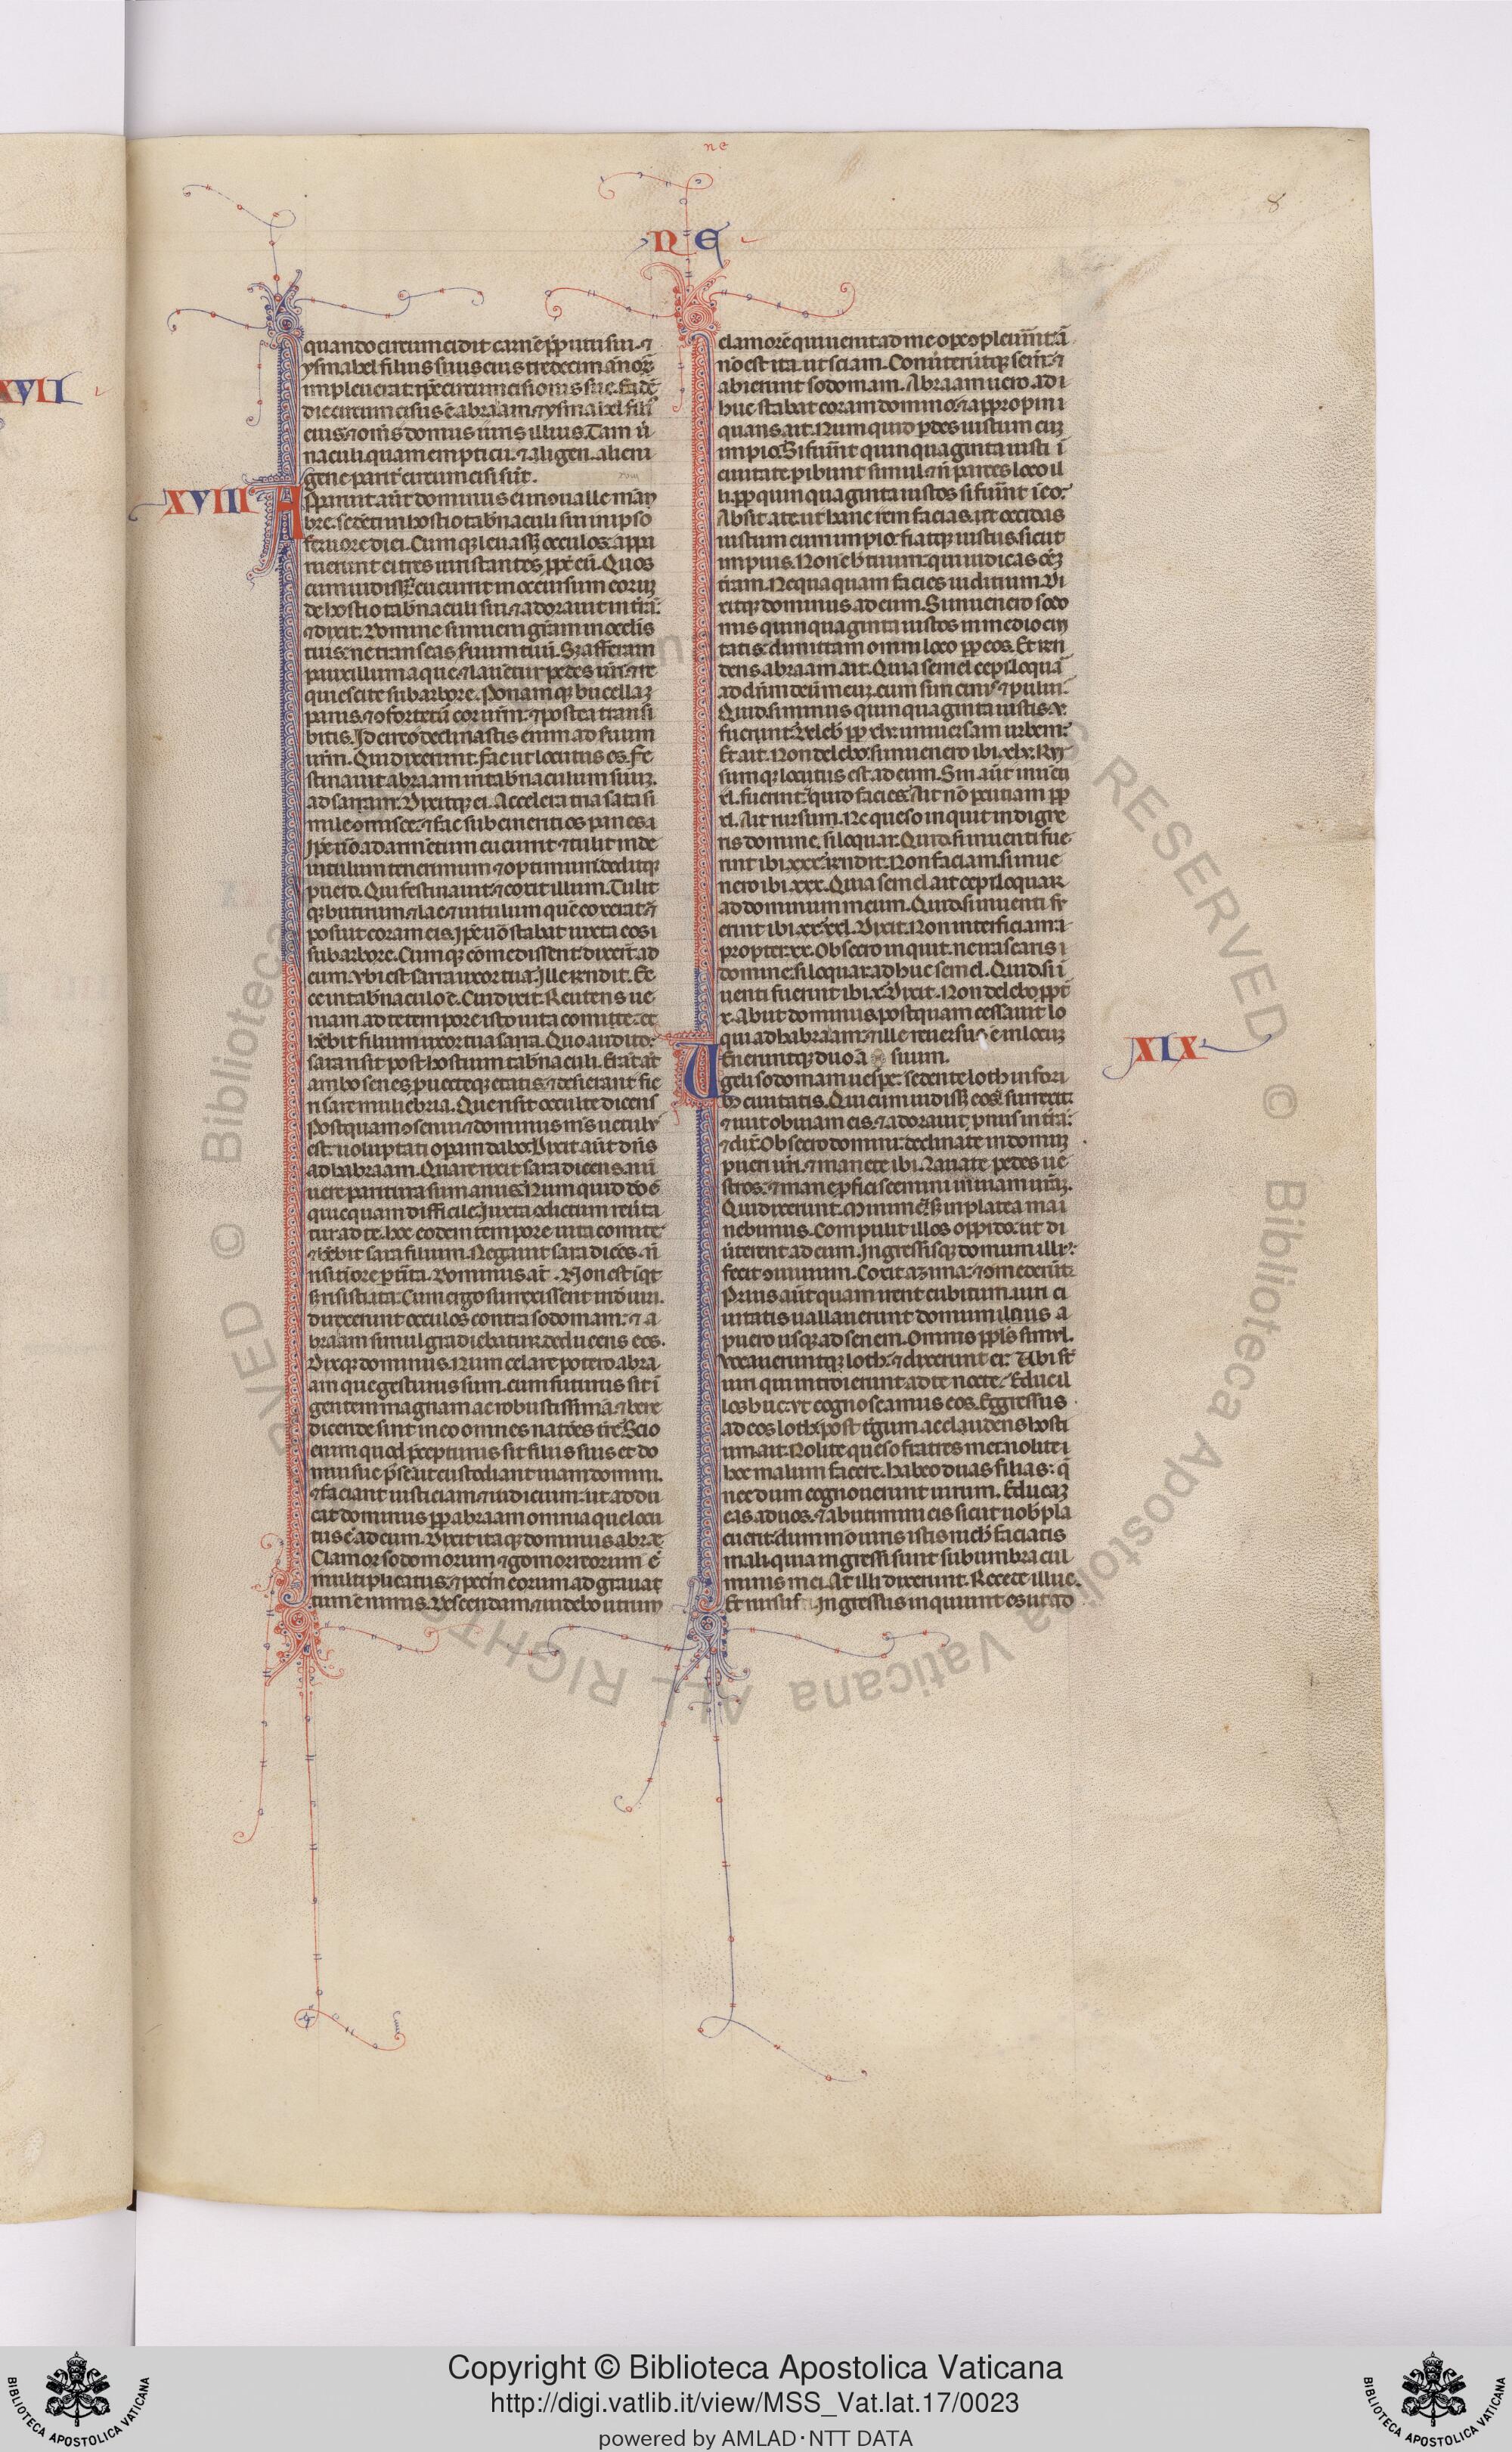 ne
8
N E
XVII
quando circumcidit carnē p̄putii sui. ⁊
ysmahel filius suus eius tredecim annoꝝ
impleuerat tp̄e circumcisionis sue. Eadē
die circumcisus ē abraam ⁊ ysmahel fili
eius ⁊ om̄s domus uiris illius. Tam ū
naculi quam empticii. ⁊ aligen. alieni
gene parit̄ circumcisi sūt.
XVIII
Apparuit aūt dominus ei in oualle mam
bre. sedeti in hostio tab̄naculi sui in ipso
feruore diei. Cumqꝫ leuasset occulos. appa
ruerunt ei tres uiri stantes ꝓpe eū. Quos
cum uidisset cucurrit in occursum eoruꝫ
de hostio tab̄naculi sui. ⁊ adorauit in tr̄a.
⁊ dixit. Domine si inueni gr̄am in oculis
tuis. ne transeas seruum tuū. Sꝫ afferam
pauxillum aque. ⁊ lauentur pedes ur̄i. ⁊ re
quiescite sub arbore. Ponamqꝫ bucellaꝫ
panis. ⁊ ofortetur cor ur̄m. ⁊ postea transi
bitis. Idcirco declinastis enim ad seruum
ur̄m. Qui dixerunt. Fac ut locutus es. Fe
stinauit abraam in tab̄naculum suuꝫ.
ad sarram. Dixitqꝫ ei. Accelera tria sata si
mile omisce. ⁊ fac subcinericios panes.
Ip̄e uō ad armētum cucurrit. ⁊ tulit inde
uitulum tenerrimum ⁊ optimum. deditqꝫ
puero. Qui festinauit ⁊ coxit illum. Tulit
qꝫ butirum ⁊ lac ⁊ uitulum quē coxerat ⁊
posuit coram eis. Ip̄e uō stabat iuxta eos
sub arbore. Cumqꝫ comedissent. dixer̄t ad
eum. Vbi est sarra uxor tua. Ille rn̄dit. Ec
ce in tab̄naculo ē. Cui dixit. Reuertens ue
niam ad te tempore isto uita comite. et
hēbit filium uxor tua sarra. Quo audito.
sara risit post hostium tab̄naculi. Erāt aūt
ambo senes ꝓuecteqꝫ etatis. ⁊ desierant fie
ri sare muliebria. Que risit occulte dicens
Postquam osenui ⁊ dominus m̄s uetulꝰ
est. uoluptati operam dabo. Dixit aūt dn̄s
ad habraam. Quare risit sara dicens. nū
uere paritura sum anus. Numquid deo ē
quicquam difficile. Iuxta edictum reūta
tur ad te. hoc eodem tempore uita comite
⁊ hēbit sara filium. Negauit sara dicēs. nō
risi timore ꝑterrita. Dominus aūt. Non est inqt
sꝫ risisti ita. Cum ergo surrexissent inde uiri.
direxerunt occulos contra sodomam. ⁊ a
braam simul gradiebatur. deducens eos.
Dixitqꝫ dominus. Num celare potero abra
am que gesturus sum. cum futurus sit ī
gentem magnam ac robustissimā. ⁊ bene
dicende sint in eo omnes natiōes tr̄e. Scio
enim quod p̄cepturus sit filiis suis et do
mui sue p̄ se ut custodiant uiam domini.
⁊ faciant iusticiam ⁊ iudicium. ut addu
cat dominus ꝓp abraam omnia que locu
tus ē ad eum. Dixit itaqꝫ dominus abrae
Clamor sodomorum ⁊ gomorreorum ē
multiplicatus. ⁊ peccm̄ eorum adgrauat
tum ē nimis. Descendam ⁊ uidebo utrum
clamorē qui uenit ad me opere opleuerint. an
nō est ita. ut sciam. Conūteruntqꝫ se inde ⁊
abierunt sodomam. Abraam uero ad
huc stabat coram domino. ⁊ appropin
quans. ait. Numquid ꝑdes iustum cuꝫ
impio. Si fuer̄nt quinquaginta iusti ī
ciuitate. peribunt simul. ⁊ n̄ parces loco il
li. ꝓp quinquaginta iustos si fuer̄nt ī eo.
Absit a te ut hanc rem facias. ut occidas
iustum cum impio. fiatqꝫ iustus. sicut
impius. Non ē h̄ tuum. qui iudicas oēꝫ
terram. Nequaquam facies iuditium. Di
xitqꝫ dominus ad eum. Si inuenero sodo
mis quinquaginta iustos in medio ciui
tatis. dimittam omni loco ꝓp eos. Et respon
dens abraam ait. Quia semel cepi. loquar
ad dn̄m deū meuꝫ. cum sim cinis ⁊ puluis.
Quid si minus quinquaginta iustis. v.
fuerint. Deleb̄ ꝓp xlv. uniuersam urbem.
Et ait. Non delebo. si inuenero ibi. xlv. Rur
sumqꝫ locutus est ad eum. Sin aūt inuēti
xl. fuerint. quid facies. Ait. nō percutiam ꝓp
xl. Ait rursum. Ne queso inquit indigne
ris domine. si loquar. Quid si inuenti fue
rint ibi. xxx. Rn̄dit. Non faciam. si inue
nero ibi. xxx. Quia semel ait cepi. loquar
ad dominum meum. Quid si inuenti fu
erint ibi. xx. Dixit. Non interficiam.
propter. xx. Obsecro inquit. ne irascaris
domine. si loquar adhuc semel. Quid si ī
uenti fuerint ibi. x. Dixit. Non delebo ꝓpt
x. Abiit dominus. postquam cessauit lo
qui ad habraam. ⁊ ille reuersus ē in locuꝫ
suum.
XIX
Uenerūntqꝫ duo an
geli sodomam uespe. sedente loth in fori
bꝫ ciuitatis. Qui cum uidisset eos. surrexit.
⁊ iuit obuiam eis. ⁊ adorauit pronus in tr̄a.
⁊ dixit. Obsecro domini. declinate in domuꝫ
pueri ur̄i. ⁊ manete ibi. Lauate pedes ue
stros. ⁊ mane ꝓficiscemini in uiam ur̄aꝫ.
Qui dixerunt. Minime. sꝫ in platea ma
nebimus. Compulit illos oppido. ut di
ūterent ad eum. Ingressisqꝫ domum illiꝰ.
fecit ouiuium. Coxit azima. ⁊ omederūt.
Prius aūt quam irent cubitum. uiri ci
uitatis uallauerunt domum illius a
puero usqꝫ ad senem. Omnis ppl̄s simul.
Vocaueruntqꝫ loth. ⁊ dixerunt ei. Vbi sūt
uiri qui introierunt ad te nocte. Educ il
los huc. ut cognoscamus eos. Egressus
ad eos loth. post tergum ac claudens hosti
um ait. Nolite queso fratres mei. nolite
hoc malum facere. habeo duas filias. que
necdum cognouerunt uirum. Educaꝫ
eas ad uos. ⁊ abutimini eis sicut uob̄ pla
cuerit. dummō uiris istis nich̄ faciatis
mali. quia ingressi sunt sub umbra cul
minis mei. At illi dixerunt. Recede illuc.
Et rursus. Ingressus inquiunt es ut ad
Copyright © Biblioteca Apostolica Vaticana
http://digi.vatlib.it/view/MSS_Vat.lat.17/0023
powered by AMLAD·NTT DATA
BIBLIOTECA APOSTOLICA VATICANA
BIBLIOTECA APOSTOLICA VATICANA